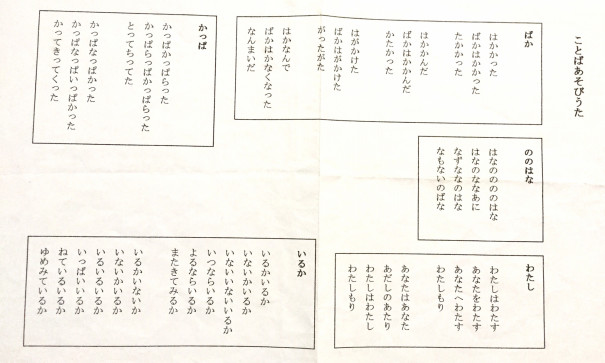 ことばあそびうた
ばか
はかかった
ばかはかかった
たかかった
はかかんだ
ばかはかかんだ
かたかった
はがかけた
ばかはがかけた
がったがた
はかなんで
ばかはかなくなった
なんまいだ
かっぱ
かっぱかっぱらった
かっぱらっぱかっぱらった
とってちってた
かっぱなっぱかった
かっぱなっぱいっぱかった
かってきってくった
ののはな
はなのののののはな
はなのななあに
なずななのはな
なもないのばな
わたし
わたしはわたす
あなたをわたす
あなたへわたす
わたしもり
あなたはあなた
あだしのあたり
わたしはわたし
わたしもり
いるか
いるかいるか
いないかいるか
いないいないいるか
いつならいるか
よるならいるか
またきてみるか
いるかいないか
いないかいるか
いるいるいるか
いっぱいいるか
ねているいるか
ゆめみているか